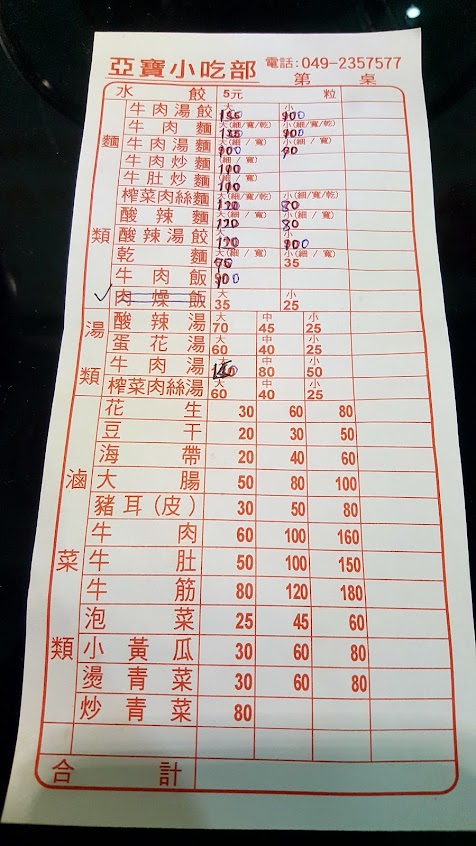 亞寶小吃部 電話:049-2357577
第 桌
水餃 5元 粒
麵類
牛肉湯餃 大 小 900
牛肉麵 大(細/寬/乾) 135 小(細/寬/乾) 900
牛肉湯麵 大(細/寬) 900 小(細/寬) 70
牛肉炒麵 (細/寬) 100
牛肚炒麵 (細/寬) 100
榨菜肉絲麵 大(細/寬/乾) 120 小(細/寬/乾) 80
酸辣麵 大(細/寬) 120 小(細/寬) 80
酸辣湯餃 大 120 小 900
乾麵 大(細/寬) 小(細/寬) 35
牛肉飯 900
肉燥飯 大 35 小 25
湯類
酸辣湯 大 70 中 45 小 25
蛋花湯 大 60 中 40 小 25
牛肉湯 大 中 80 小 50
榨菜肉絲湯 大 60 中 40 小 25
滷菜類
花生 30 60 80
豆干 20 30 50
海帶 20 40 60
大腸 50 80 100
豬耳(皮) 30 50 80
牛肉 60 100 160
牛肚 50 100 150
牛筋 80 120 180
泡菜 25 45 60
小黃瓜 30 60 80
燙青菜 30 60 80
炒青菜 80
合計